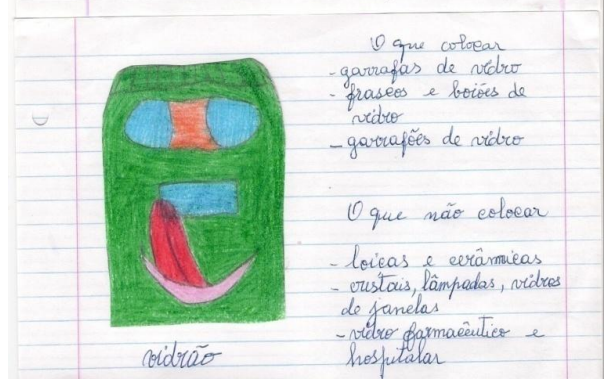 O que colocar
- garrafas de vidro
- frascos e boiões de
vidro
- garrafões de vidro
O que não colocar
- loicas e cerâmicas
- cristais, lâmpadas, vidros
de janelas
- vidro farmacêutico e
hospitalar
vidrão